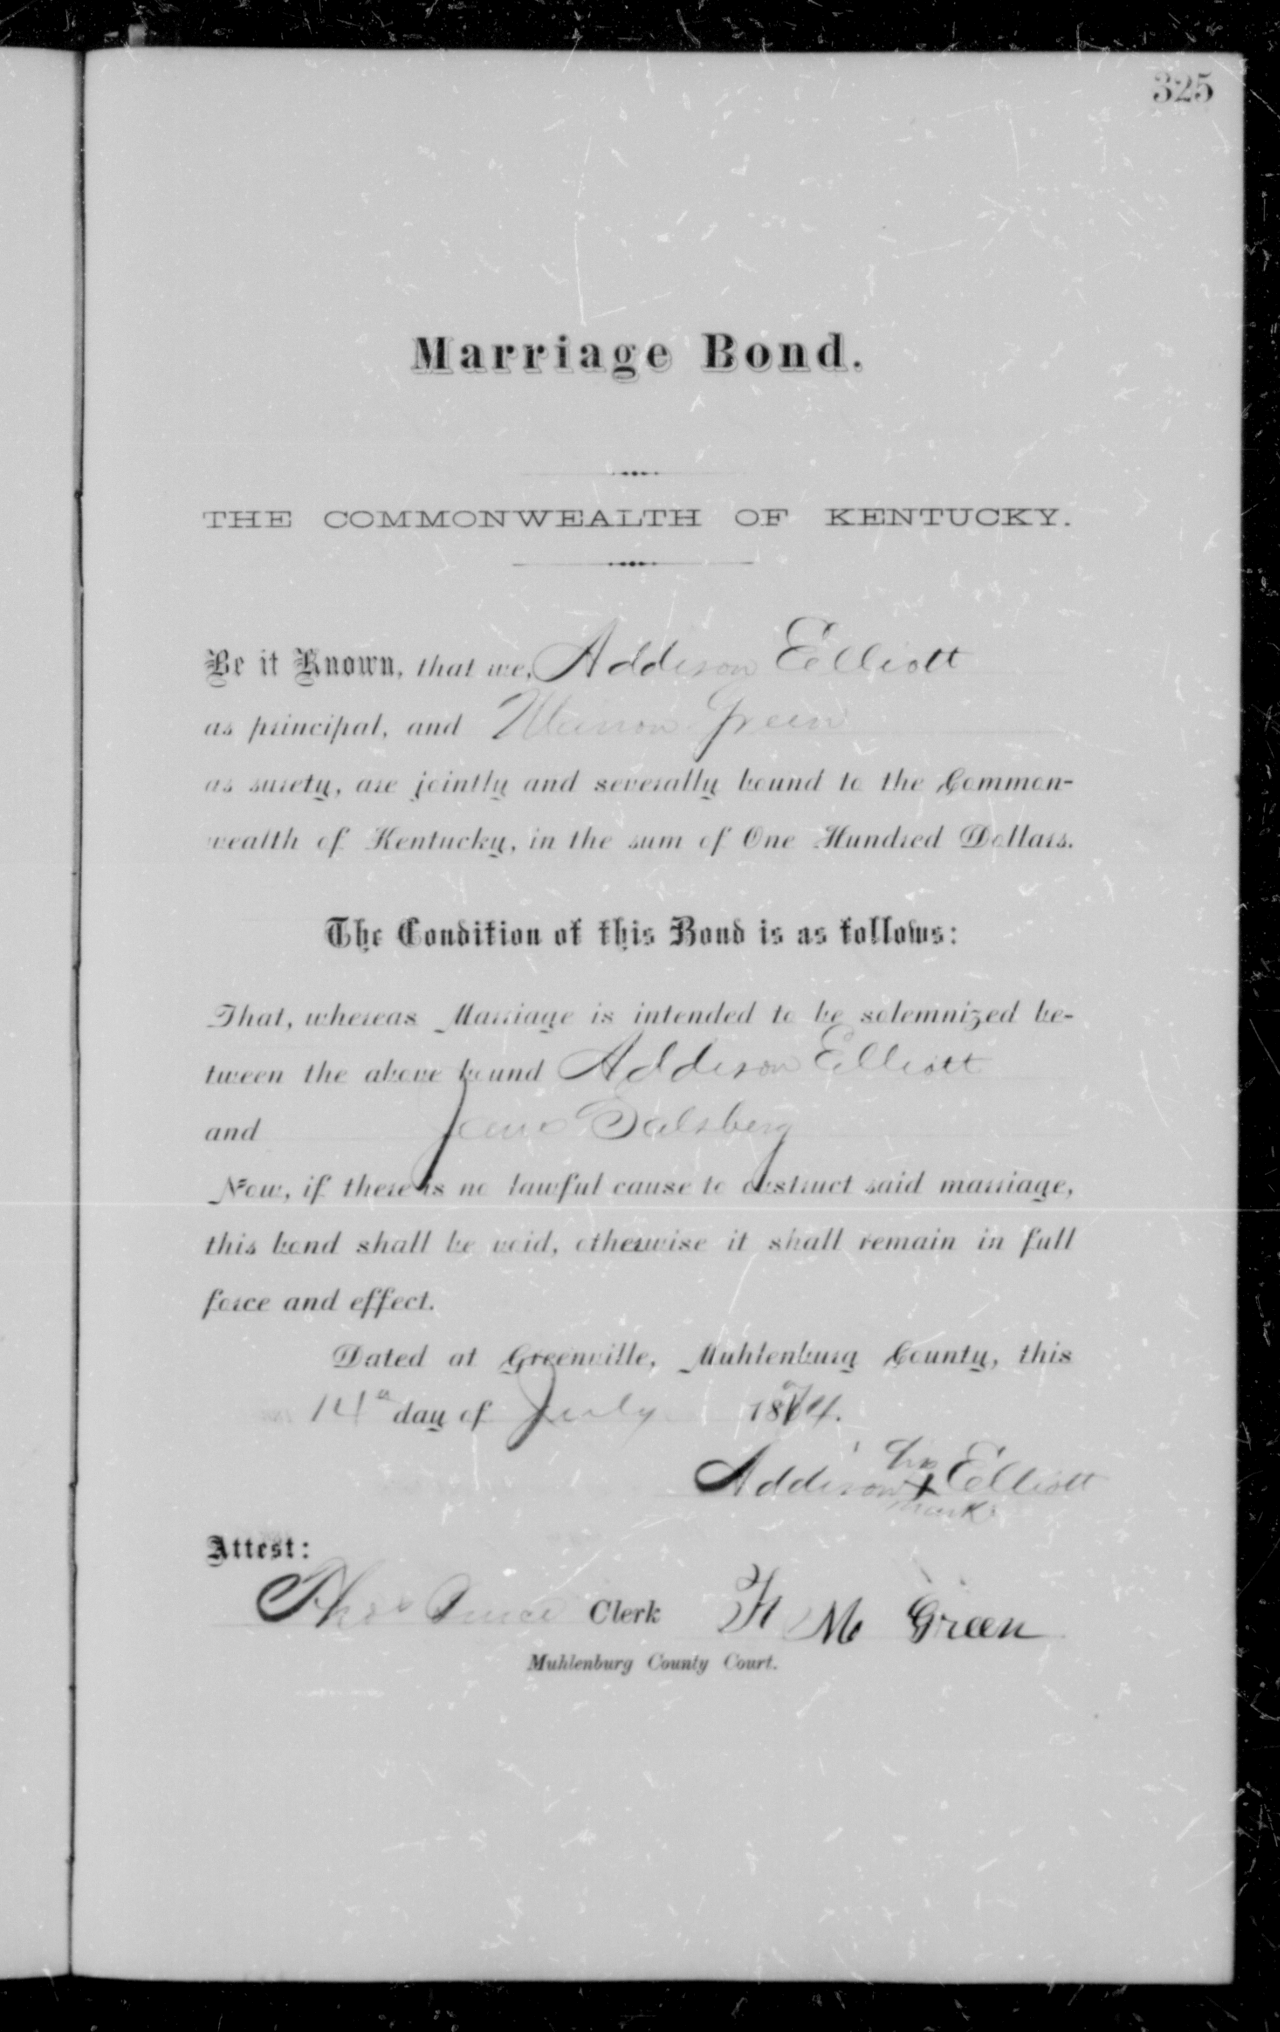 325
Marriage Bond.
THE COMMONWEALTH OF KENTUCKY.
Be it Known, that we, Addison Elliott
as principal, and Green
as surety, are jointly and severally bound to the Common-
wealth of Kentucky, in the sum of One Hundred Dollars.
The Condition of this Bond is as follows:
That, whereas Marriage is intended to be solemnized be-
tween the above bound Addison Elliott
and Jane
Now, if there is no lawful cause to obstruct said marriage,
this bond shall be void, otherwise it shall remain in full
force and effect.
Dated at Greenville, Muhlenburg County, this
14 day of July 1874.
his
Addison X Elliott
mark
Attest:
Thos Clerk M Green
Muhlenburg County Court.